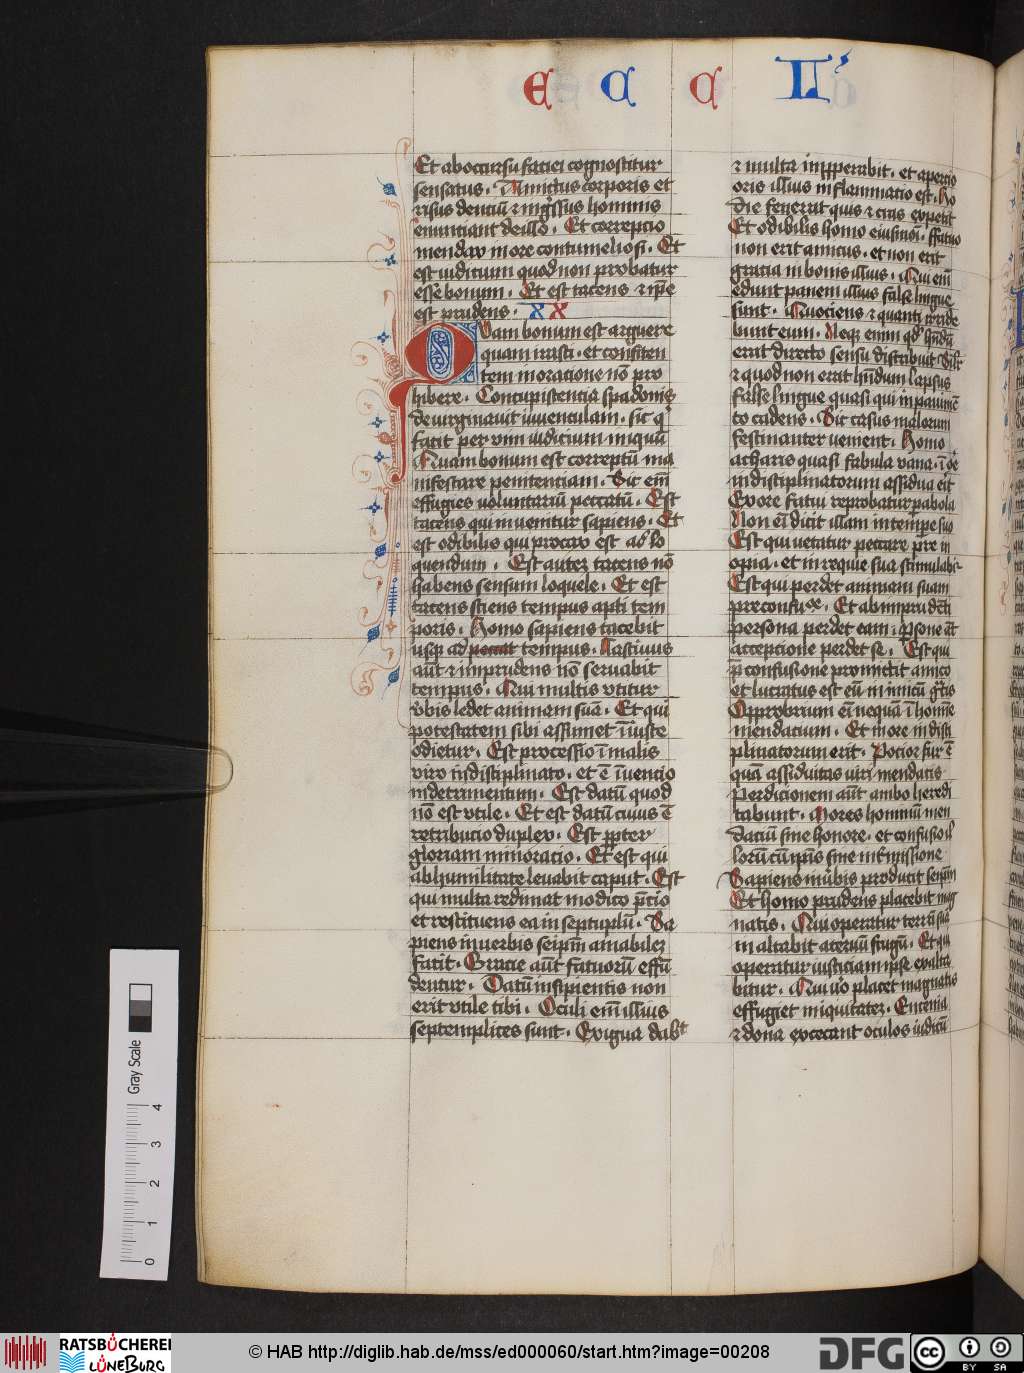 E C C Li
Et ab occursu faciei cognoscitur
sensatus. Amictus corporis et
risus dentiū ⁊ ingressus hominis
enunciant de illo. Et correpcio
mendax in ore contumeliosi. Et
est iudicium quod non probatur
esse bonum. Et est tacens ⁊ ipe
est prudens. XX
Quam bonum est arguere
quam irasci. et confiten
tem in oracione nō pro
hibere. Concupiscentia spadonis
deuirginauit iuuenculam. sic q
facit per vim iudicium iniquū
Quam bonum est correptū ma
nifestare penitenciam. Sic eīm
effugies voluntariū peccatū. Est
tacens qui inuenitur sapiens. Et
est odibilis qui procax est ad lo
quendum. Est autem tacens nō
habens sensum loquele. Et est
tacens sciens tempus apti tem
poris. Homo sapiens tacebit
usqꝫ ad tempus. Lasciuus
aūt ⁊ imprudens nō seruabit
tempus. Qui multis vtitur
v̄bis ledet animam suā. Et qui
potestatem sibi assumet īiuste
odietur. Est processio ī malis
viro indisciplinato. et ē īuencio
in detrimentum. Est datū quod
nō est vtile. Et est datū cuius ē
retribucio duplex. Est ꝓpter
gloriam minoracio. Et est qui
ab humilitate leuabit caput. Est
qui multa redimat modico p̄cio
et restituens ea in septuplū. Sa
piens in uerbis seipm̄ amabilem
facit. Gracie aūt fatuorū effū
dentur. Datū insipientis non
erit vtile tibi. Oculi eīm illius
septemplices sunt. Exigua dabit
⁊ multa inpꝑerabit. et apercio
oris illius inflammacio est. Ho
die fenerat quis ⁊ cras expetit
Et odibilis homo eiusmōi. ffatuo
non erit amicus. et non erit
gracia in bonis illius. Qui eīm
edunt panem illius false lingue
sunt. Quociens ⁊ quanti irride
bunt eum. Neqꝫ enim qd̄ hn̄dū
erat directo sensu distribuit
⁊ quod non erat hn̄dum lapsus
false lingue quasi qui in pauimē
to cadens. Sic casus malorum
festinanter uenient. Homo
acharis quasi fabula vana. ī oē
indisciplinatorum assidua erit
Ex ore fatui reprobatur parabola
Non eī dicit illam in tempe suo
Est qui uetatur peccare pre in
opia. et in requie sua stimulabit
Est qui perdet animam suam
pre confusōe. Et ab imprudēti
persona perdet eam. ꝑsone aūt
acceptione perdet se. Est qui
p̄ confusione promittit amico
et lucratus est eū inimicū gratis
Opprobrium eī nequā ī homīne
mendacium. Et in ore indisci
plinatorum erit. Pocior fur ē
quā assiduitas viri mendacis
Perdicionem aūt ambo heredi
tabunt. Mores hominū men
dacium sine honore. et confusio il
lorū cū ipīs sine intermissione
Sapiens in ūbis producit seipm̄
Et homo prudens placebit mag
natis. Qui operatur terrā suā
inaltabit aceruū frugū. Et qui
operatur iusticiam ipse exalta
bitur. Qui uō placet magnatis
effugiet iniquitatem. Encenia
⁊ dona excecant oculos iudicū
Gray Scale
0 1 2 3 4
RATSBÜCHEREI
LÜNEBURG
© HAB http://diglib.hab.de/mss/ed000060/start.htm?image=00208
DFG
cc BY SA